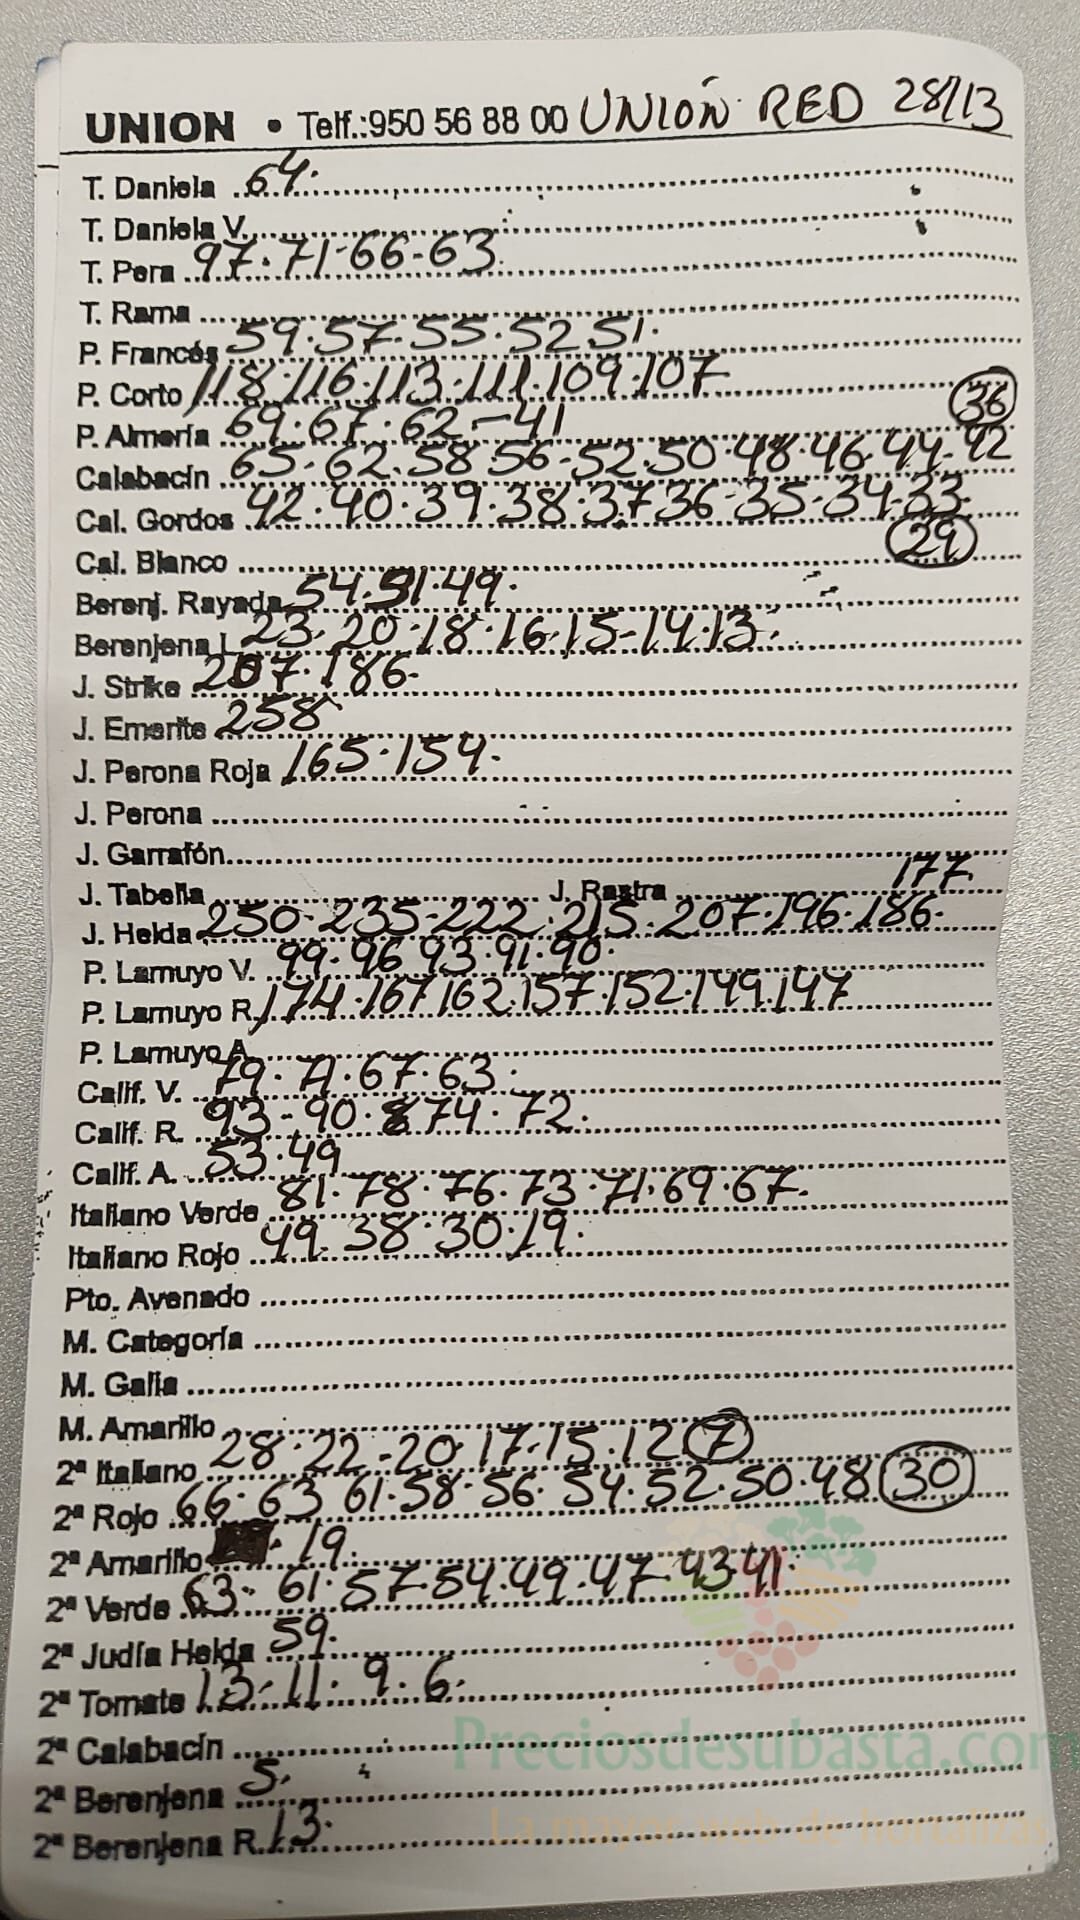 UNION • Telf.:950 56 88 00 UNIÓN RED 28/13
T. Daniela 64.
T. Daniela V.
T. Pera 97.71-66-63.
T. Rama
P. Francés 59.57.55.52.51.
P. Corto 118.116.113.111.109.107
P. Almería 69.67.62.-41
36
Calabacín 65-62.58.56-52.50.48.46.44-42
Cal. Gordos 42.40.39.38.37 36-35-34-33.
29
Cal. Blanco
Berenj. Rayada 54.51.49.
Berenjena L. 23.20.18.16.15-14.13.
J. Strike 207.186.
J. Emerite 258
J. Perona Roja 165.154.
J. Perona
J. Garrafón
177.
J. Tabella J. Rastra
J. Helda 250-235-222.215.207.196.186.
P. Lamuyo V. 99.96 93.91.90.
P. Lamuyo R. 174.167 162.157.152.149.147
P. Lamuyo A.
Calif. V. 79.71.67.63.
Calif. R. 93-90.74.72.
Calif. A. 53.49
Italiano Verde 81.78.76.73.71.69.67.
Italiano Rojo 49.38.30.19.
Pto. Avenado
M. Categoría
M. Galia
M. Amarillo
2ª Italiano 28.22-20.17.15.12 7
2ª Rojo 66.63 61.58-56.54.52.50.48 30
2ª Amarillo 19.
2ª Verde 63.61.57.54.49.47.43.41.
2ª Judía Helda 59.
2ª Tomate 13.11.9.6.
2ª Calabacín
Preciosdesubasta.com
2ª Berenjena 5.
La mayor web de hortalizas
2ª Berenjena R. 13.